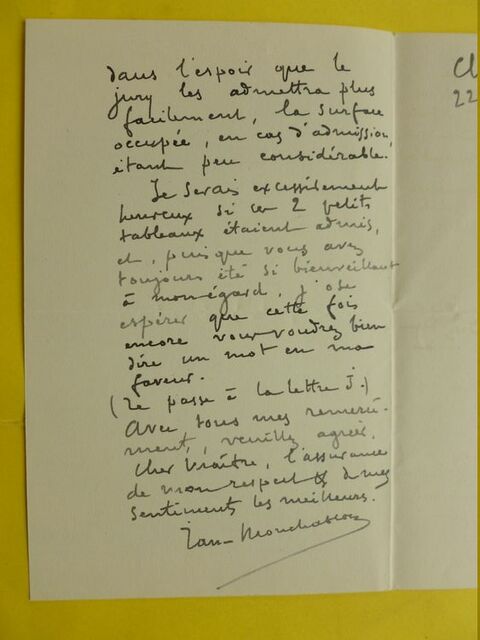 dans l'espoir que le
jury les admettra plus
facilement, la surface
occupée, en cas d'admission,
étant peu considérable.
Je serais excessivement
heureux si ces 2 petits
tableaux étaient admis,
et, puisque vous avez
toujours été si bienveillant
à mon égard, j'ose
espérer que cette fois
encore vous voudrez bien
dire un mot en ma
faveur.
(Je passe à la lettre J.)
Avec tous mes remercie-
ment, veuillez agréer,
cher Maître, l'assurance
de mon respect & de mes
sentiments les meilleurs.
Jan-Monchablon
Ch
22